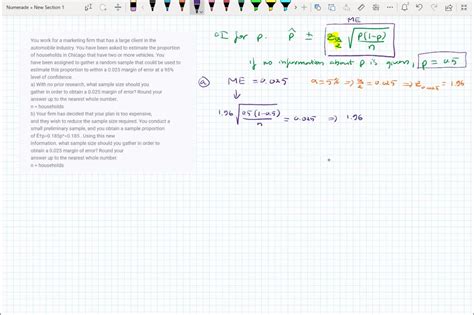 Numerade » New Section 1
You work for a marketing firm that has a large client in the
automobile industry. You have been asked to estimate the proportion
of households in Chicago that have two or more vehicles. You
have been assigned to gather a random sample that could be used to
estimate this proportion to within a 0.025 margin of error at a 95%
level of confidence.
a) With no prior research, what sample size should you
gather in order to obtain a 0.025 margin of error? Round your
answer up to the nearest whole number.
n = households
b) Your firm has decided that your plan is too expensive,
and they wish to reduce the sample size required. You conduct a
small preliminary sample, and you obtain a sample proportion
of Ëœp=0.185p^=0.185 . Using this new
information. what sample size should you gather in order to
obtain a 0.025 margin of error? Round your
answer up to the nearest whole number.
n = households
ME
CI for p. p̂ ± z_{α/2} √(p(1-p)/n)
if no information about p is given, p = 0.5
(a) ME = 0.025 α = 5% ⇒ α/2 = 0.025 ⇒ z_{0.025} = 1.96
1.96 √(0.5(1-0.5)/n) = 0.025 ⇒ 1.96